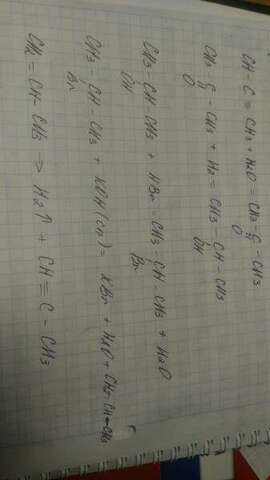 CH-C=CH3+H2O=CH3-C-CH3
O
CH3-C-CH3+H2=CH3-CH-CH3
O OH
CH3-CH-CH3+HBr=CH3-CH-CH3+H2O
OH Br
CH3-CH-CH3+KOH(сп)=KBr+H2O+CH2-CH=CH3
Br
CH2=CH-CH3->H2↑+CH≡C-CH3